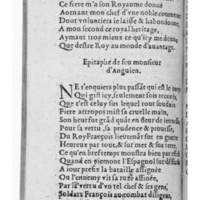 Ce sierc m'a son Royaume donné
Aornant mon chef d'vne noble couronne
Dont volontiers ie laisse & habandonne
A mon second ce royal heritage,
Aymant trop mieux ce qu'y m'y
Que d'estre Roy au monde d'auantage.
Epitaphe de feu monsieur
d'Anguien.
NE t'enquiers plus passãt qui est le
Qui gist icy, seulement sois
Que c'est celuy sur lequel tout soudain
Fiere attropos mist sa cruelle main,
Son heur fut grãd quãt en fleur de ieunesse
Pour sa vertu, sa prudence & prouesse,
Du Roy François lieutenãt fut en guerre
Heureux par tout, & sur mer & sur terre.
Ce qu'en bref temps monstra bien
Quand en piemont l'Espagnol
A iour prefix la bataille assignée
Ou l'ennemy vit sa ruïne
Par sa vertu d'vn tel chef & ses gens,
Soldats François au combat diligens,